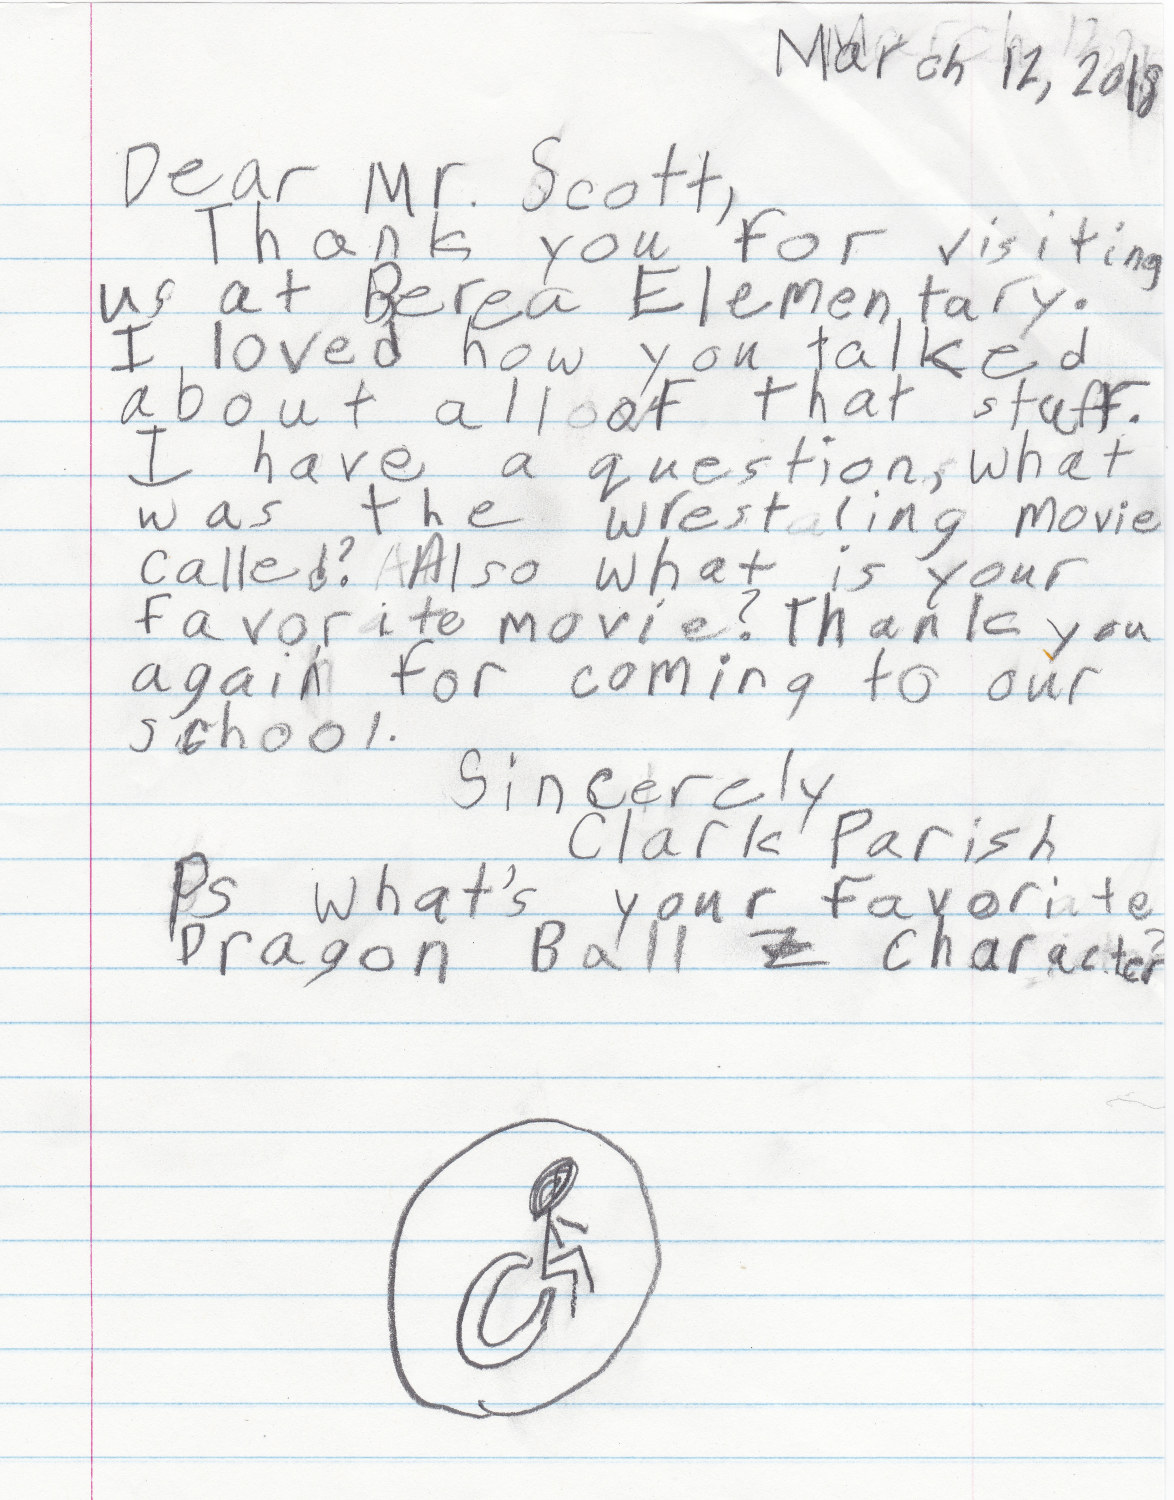 March 12, 2018
Dear Mr. Scott,
Thank you for visiting
us at Berea Elementary.
I loved how you talked
about all of that stuff.
I have a question, what
was the wrestling movie
called? Also what is your
favorite movie? Thank you
again for coming to our
school.
Sincerely
Clark Parish
Ps what's your favoriate
Dragon Ball Z character?